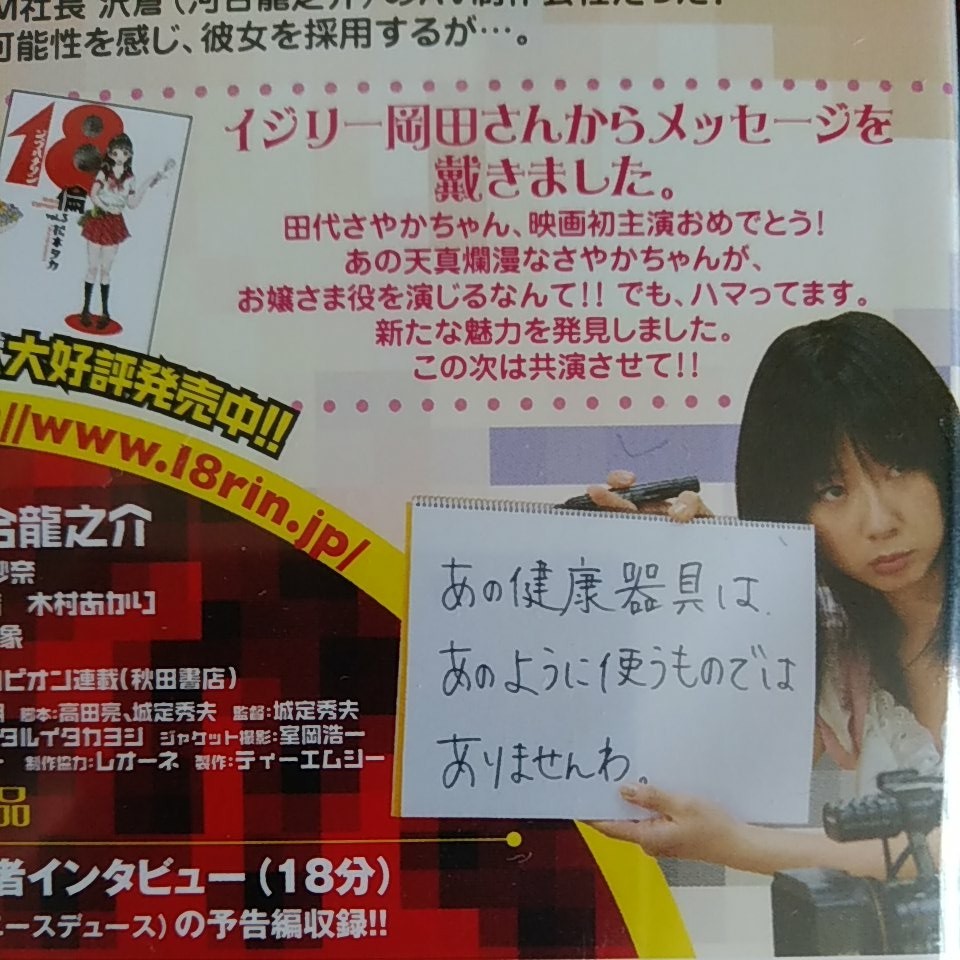 M社長 沢倉(河合龍之介)のAV制作会社だった!
可能性を感じ、彼女を採用するが…。
イジリー岡田さんからメッセージを
戴きました。
田代さやかちゃん、映画初主演おめでとう!
あの天真爛漫なさやかちゃんが、
お嬢さま役を演じるなんて!! でも、ハマってます。
新たな魅力を発見しました。
この次は共演させて!!
18
倫
vol.3
松本タカ
大好評発売中!!
//www.18rin.jp/
合龍之介
紗奈
木村あかり
象
ピオン連載(秋田書店)
脚本:高田亮、城定秀夫 監督:城定秀夫
タルイタカヨシ ジャケット撮影:室岡浩一
制作協力:レオーネ 製作:ティーエムシー
品
者インタビュー(18分)
ニースデュース)の予告編収録!!
あの健康器具は
あのように使うものでは
ありませんわ。